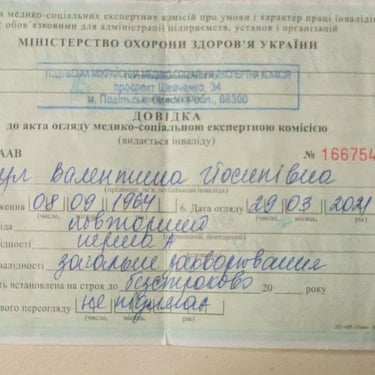 медико-соціальних експертних комісій про умови і характер праці інвалідів
є обов'язковими для адміністрації підприємств, установ і організацій
МІНІСТЕРСТВО ОХОРОНИ ЗДОРОВ'Я УКРАЇНИ
ПОДІЛЬСЬКА МІЖРАЙОННА МЕДИКО-СОЦІАЛЬНА ЕКСПЕРТНА КОМІСІЯ
проспект Шевченко, 34
м. Подільськ, Одеської обл., 66300
ДОВІДКА
до акта огляду медико-соціальною експертною комісією
(видається інваліду)
ААВ № 166754
Валентина Йосипівна
(прізвище, ім'я, по батькові інваліда)
ження 08 09 1964 6. Дата огляду 29 03 2021
(число, місяць, рік) (число, місяць, рік)
да повторний
(первинний, повторний)
перша А
валідності загальне захворювання
ть встановлена на строк до безстроково 20 року
вого переогляду не підлягає
(число, місяць, рік)